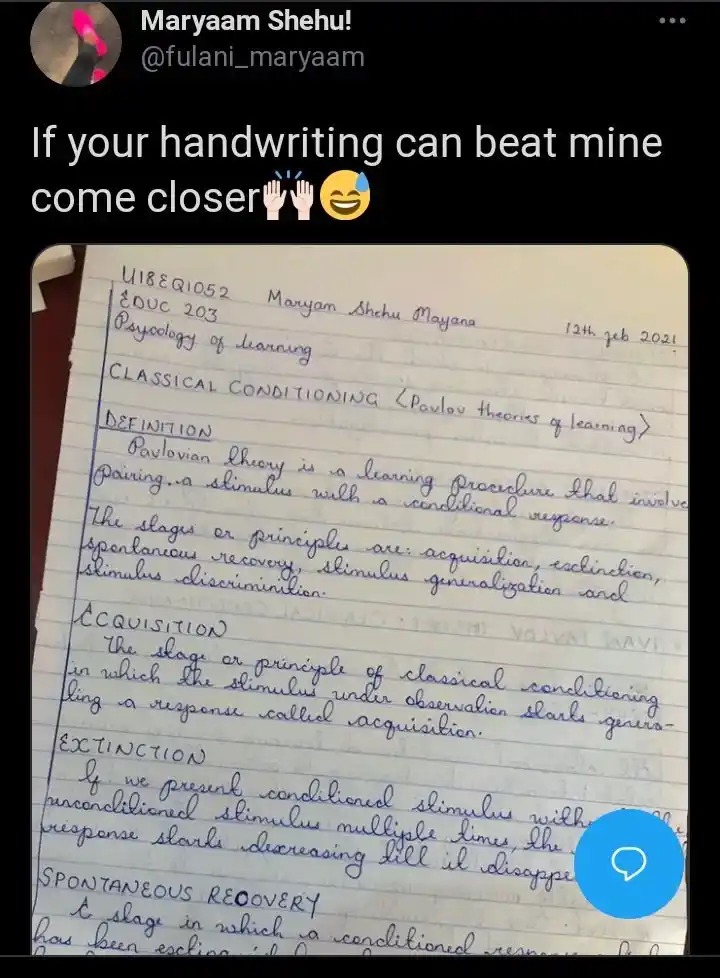 Maryaam Shehu!
@fulani_maryaam
If your handwriting can beat mine
come closer🙌🏻😅
U18EQ1052 Maryam Shehu Mayana 12th feb 2021
EDUC 203
Psycology of learning
CLASSICAL CONDITIONING (Pavlov theories of learning)
DEFINITION
Pavlovian theory is a learning procedure that involve
pairing a stimulus with a conditional response.
The stages or principles are: acquisition, exctinction,
spontaneous recovery, stimulus generalization and
stimulus discriminition.
ACQUISITION
The stage or principle of classical conditioning
in which the stimulus under observation starts genera-
ting a response called acquisition.
EXTINCTION
If we present conditioned stimulus
unconditioned stimulus multiple times, the
response starts decreasing till it disappe
SPONTANEOUS RECOVERY
A stage in which a conditioned
has been